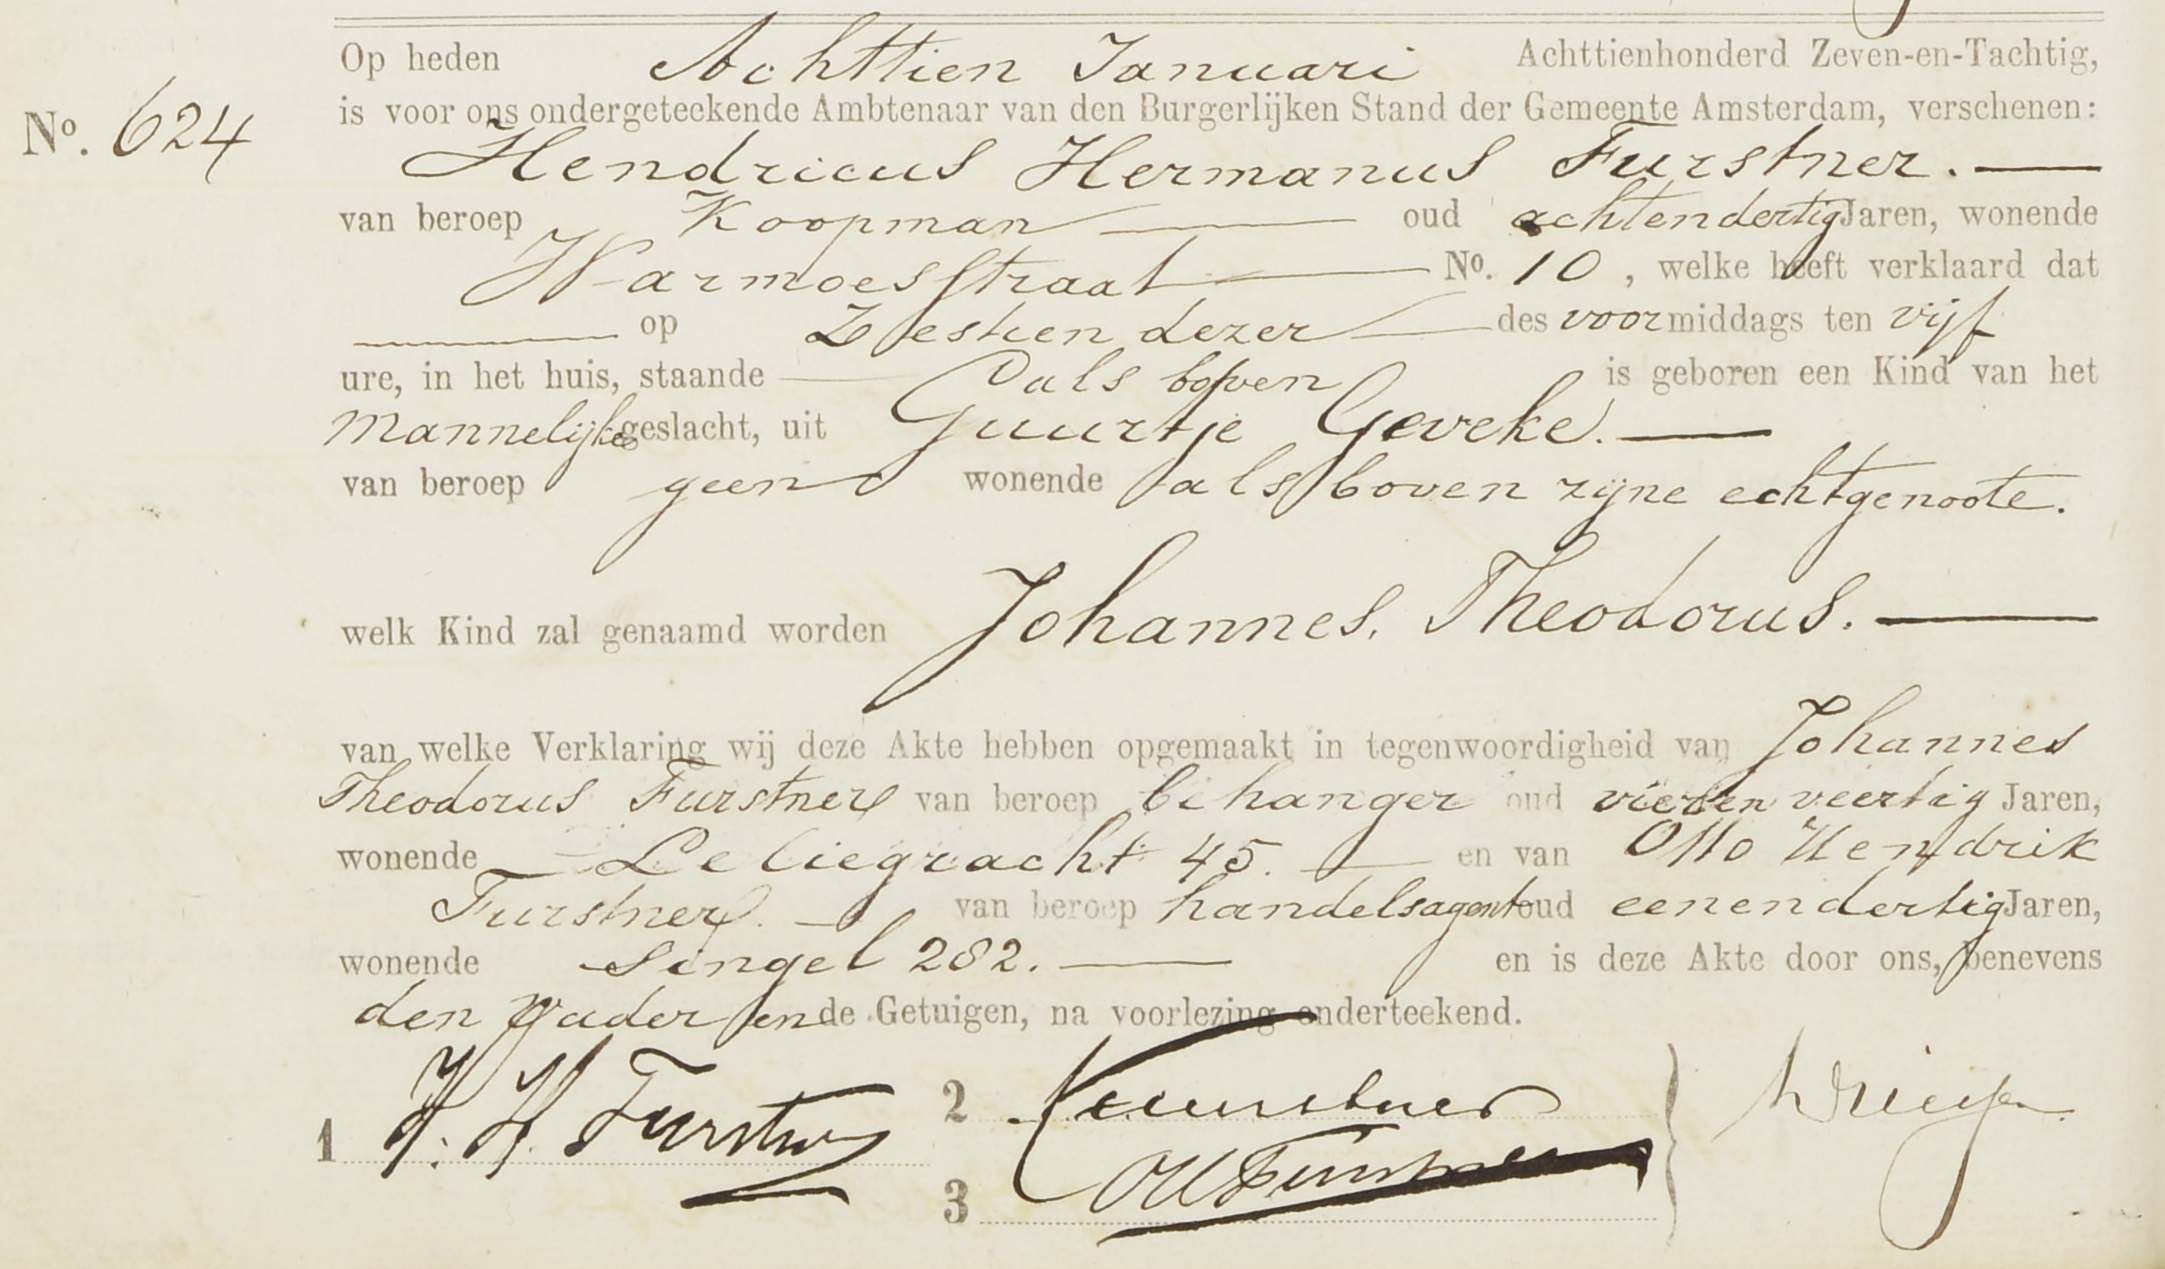 Op heden Achttien Januari Achttienhonderd Zeven-en-Tachtig,
is voor ons ondergeteekende Ambtenaar van den Burgerlijken Stand der Gemeente Amsterdam, verschenen:
No. 624
Hendricus Hermanus Furstner. —
van beroep Koopman — oud achtendertig Jaren, wonende
Warmoesstraat — No. 10, welke heeft verklaard dat
— op Zestien dezer — des voormiddags ten vijf
ure, in het huis, staande — als boven is geboren een Kind van het
Mannelijke geslacht, uit Guurtje Geveke. —
van beroep geen wonende als boven zijne echtgenoote.
welk Kind zal genaamd worden Johannes. Theodorus. —
van welke Verklaring wij deze Akte hebben opgemaakt in tegenwoordigheid van Johannes
Theodorus Furstner van beroep behanger oud vierenveertig Jaren,
wonende — Leliegracht 45. — en van Otto Hendrik
Furstner. — van beroep handelsagent oud eenendertig Jaren,
wonende Singel 282. — en is deze Akte door ons, benevens
den Vader en de Getuigen, na voorlezing onderteekend.
1 H. H. Furstner
2 Furstner
3 OHFurstner